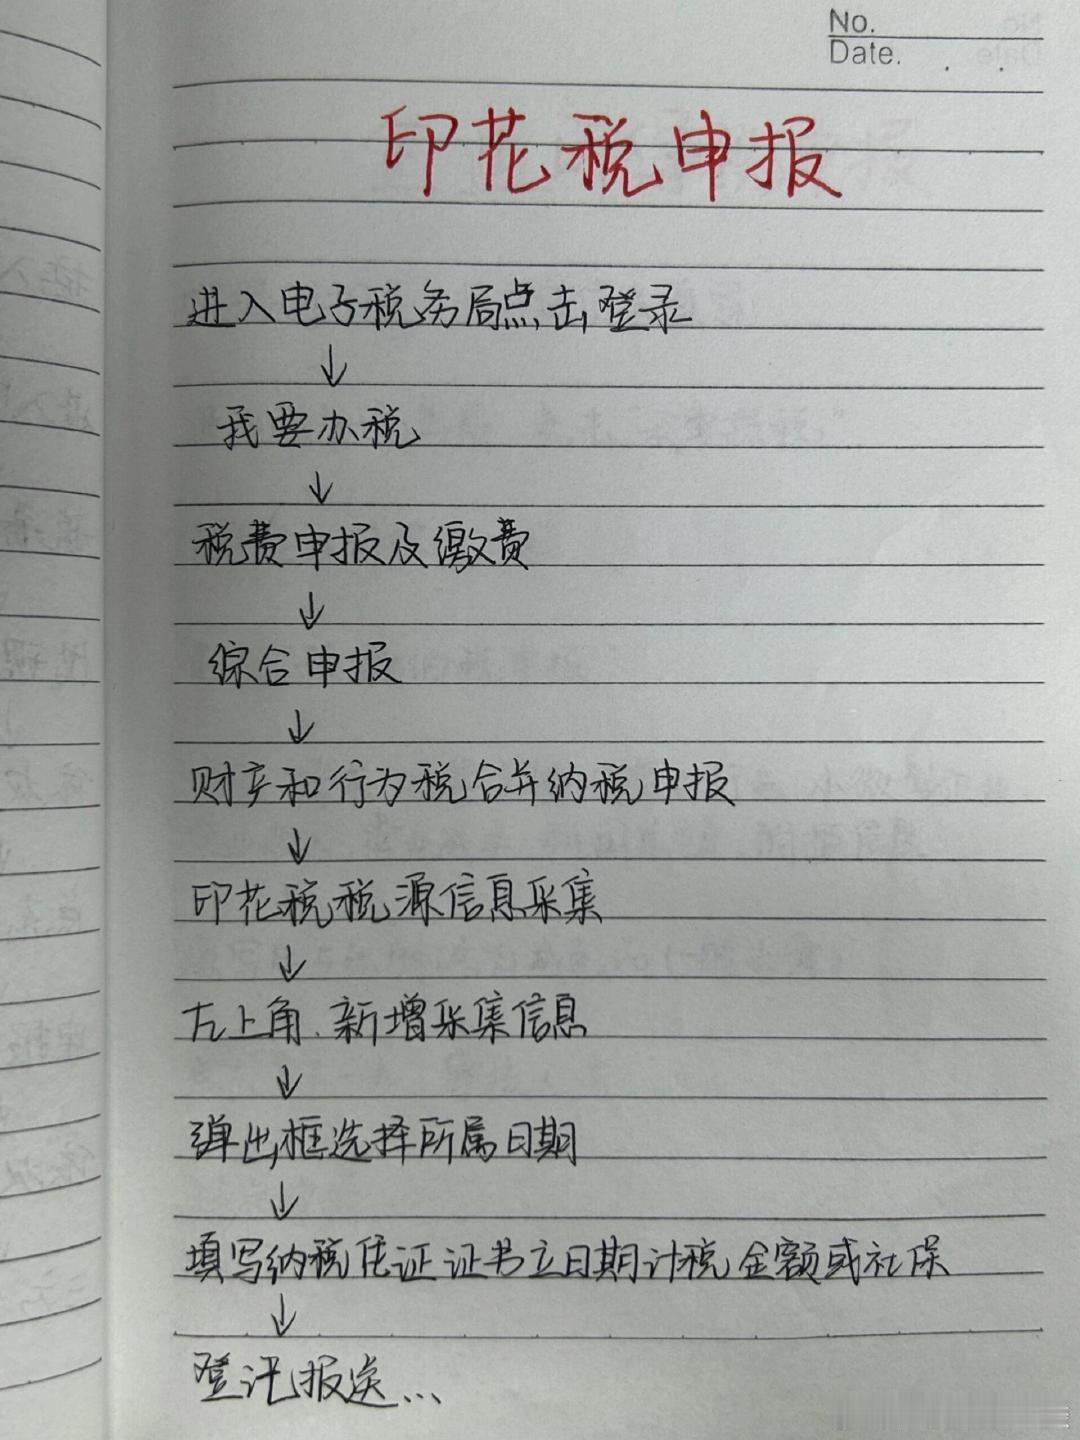 No.
Date.
印花税申报
进入电子税务局点击登录
↓
我要办税
↓
税费申报及缴费
↓
综合申报
↓
财产和行为税合并纳税申报
↓
印花税税源信息采集
↓
左上角.新增采集信息
↓
弹出框选择所属日期
↓
填写纳税凭证证书立日期计税金额或社保
↓
登记报送...